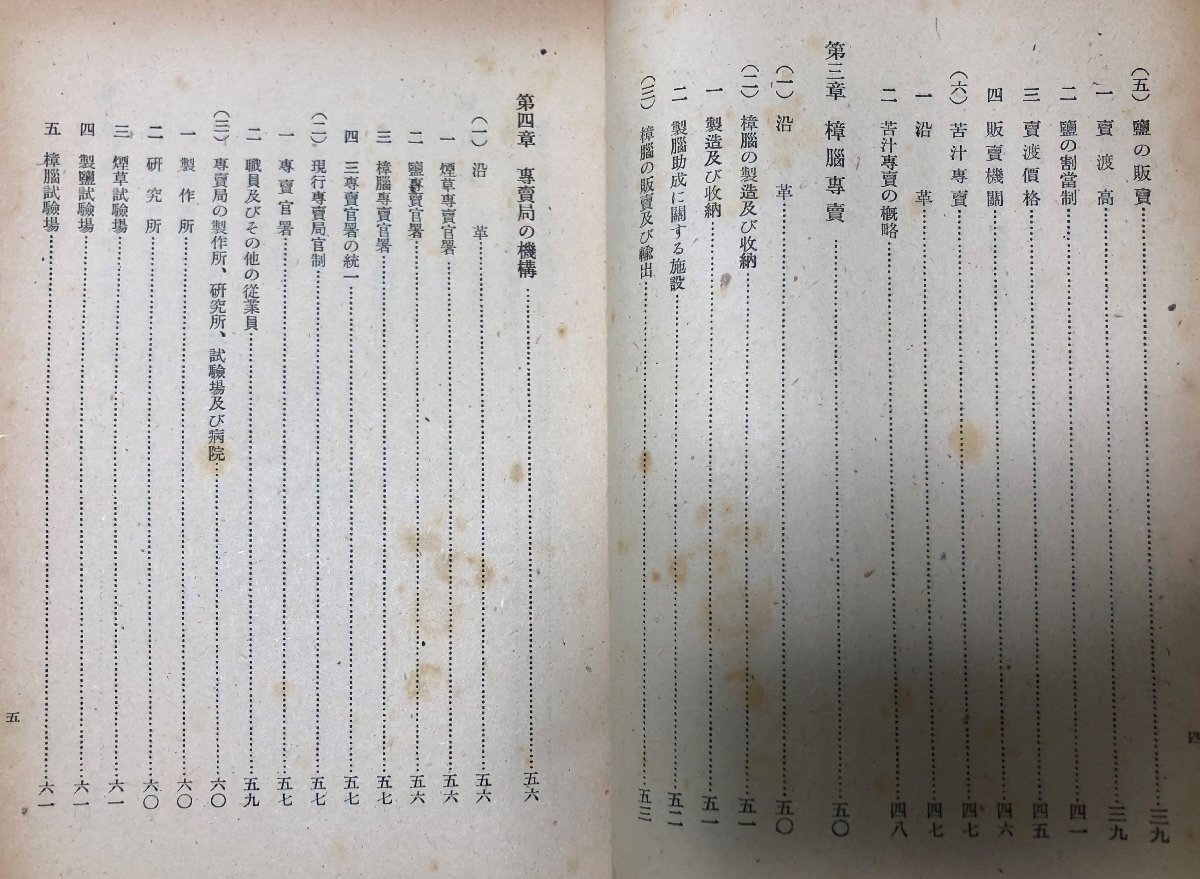 (五) 鹽の販賣……三九
一 賣渡高……三九
二 鹽の割當制……四一
三 賣渡價格……四五
四 販賣機關……四六
(六) 苦汁專賣……四七
一 沿革……四七
二 苦汁專賣の概略……四八
第三章 樟腦專賣……五〇
(一) 沿革……五〇
(二) 樟腦の製造及び收納……五一
一 製造及び收納……五一
二 製腦助成に關する施設……五二
(三) 樟腦の販賣及び輸出……五三
四
第四章 專賣局の機構……五六
(一) 沿革……五六
一 煙草專賣官署……五六
二 鹽專賣官署……五六
三 樟腦專賣官署……五七
四 三專賣官署の統一……五七
(二) 現行專賣局官制……五七
一 專賣官署……五七
二 職員及びその他の從業員……五九
(三) 專賣局の製作所、研究所、試驗場及び病院……六〇
一 製作所……六〇
二 研究所……六〇
三 煙草試驗場……六一
四 製鹽試驗場……六一
五 樟腦試驗場……六一
五